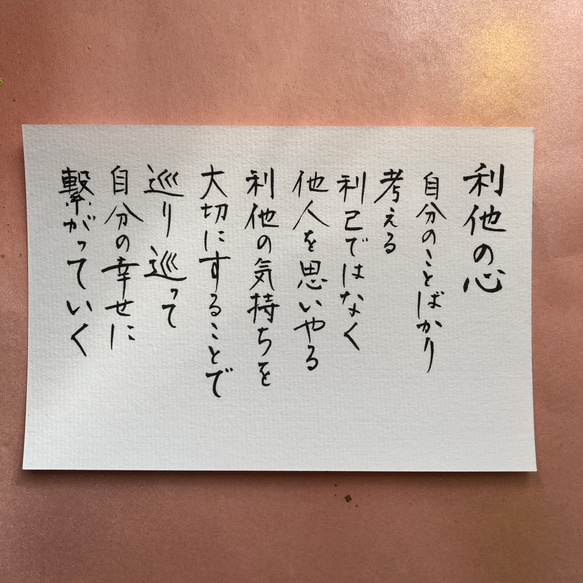 利他の心
自分のことばかり
考える
利己ではなく
他人を思いやる
利他の気持ちを
大切にすることで
巡り巡って
自分の幸せに
繋がっていく